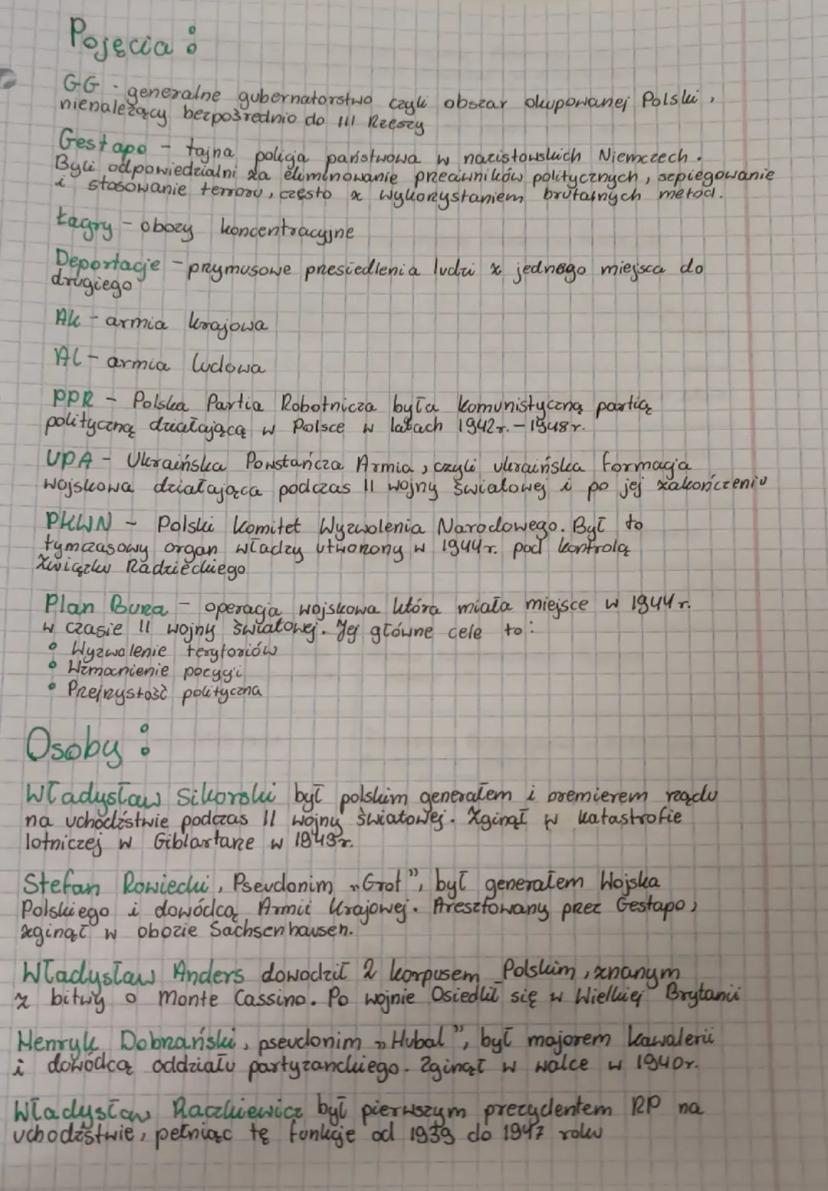 Pojęcia :
GG - generalne gubernatorstwo czyli obszar okupowanej Polski,
nienależący bezpośrednio do III Rzeszy
Gestapo - tajna policja państwowa w nazistowskich Niemczech.
Byli odpowiedzialni za eliminowanie przeciwników politycznych, szpiegowanie
i stosowanie terroru, często z wykorzystaniem brutalnych metod.
Łagry - obozy koncentracyjne
Deportacje - przymusowe przesiedlenia ludzi z jednego miejsca do
drugiego
AK - armia krajowa
AL - armia ludowa
PPR - Polska Partia Robotnicza była komunistyczną partią
polityczną działającą w Polsce w latach 1942r. - 1948r.
UPA - Ukraińska Powstańcza Armia, czyli ukraińska formacja
wojskowa działająca podczas II wojny światowej i po jej zakończeniu
PKWN - Polski Komitet Wyzwolenia Narodowego. Był to
tymczasowy organ władzy utworzony w 1944r. pod kontrolą
Związku Radzieckiego
Plan Burza - operacja wojskowa która miała miejsce w 1944r.
w czasie II wojny światowej. Jej główne cele to:
• Wyzwolenie terytoriów
• Wzmocnienie pozycji
• Przejrzystość polityczna
Osoby :
Władysław Sikorski był polskim generałem i premierem rządu
na uchodźstwie podczas II wojny światowej. Zginął w katastrofie
lotniczej w Giblartarze w 1943r.
Stefan Rowiecki, Pseudonim "Grot", był generałem Wojska
Polskiego i dowódcą Armii Krajowej. Aresztowany przez Gestapo,
zginął w obozie Sachsenhausen.
Władysław Anders dowodził 2 korpusem Polskim, znanym
z bitwy o Monte Cassino. Po wojnie Osiedlił się w Wielkiej Brytanii
Henryk Dobrzański, pseudonim "Hubal", był majorem kawalerii
i dowódcą oddziału partyzanckiego. Zginął w walce w 1940r.
Władysław Raczkiewicz był pierwszym prezydentem RP na
uchodźstwie, pełniąc tę funkcje od 1939 do 1947 roku